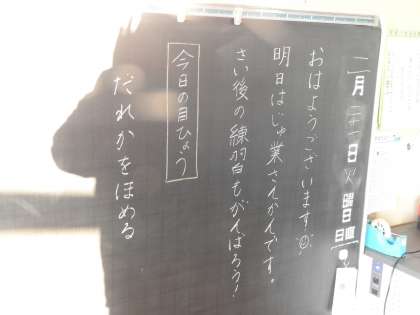 二月二十一日(火)曜日
日直
おはようございます☺!
明日はじゅ業さんかんです。
さい後の練習もがんばろう!
今日の目ひょう
だれかをほめる